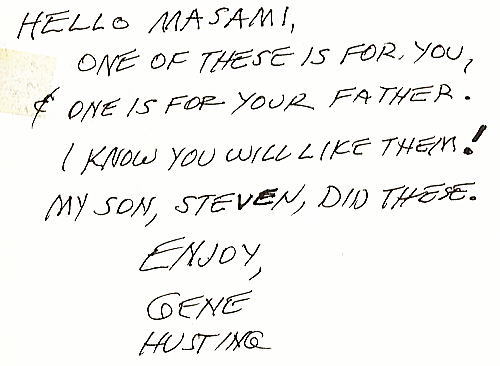 HELLO MASAMI,
ONE OF THESE IS FOR YOU,
& ONE IS FOR YOUR FATHER.
I KNOW YOU WILL LIKE THEM!
MY SON, STEVEN, DID THESE.
ENJOY,
GENE
HUSTING